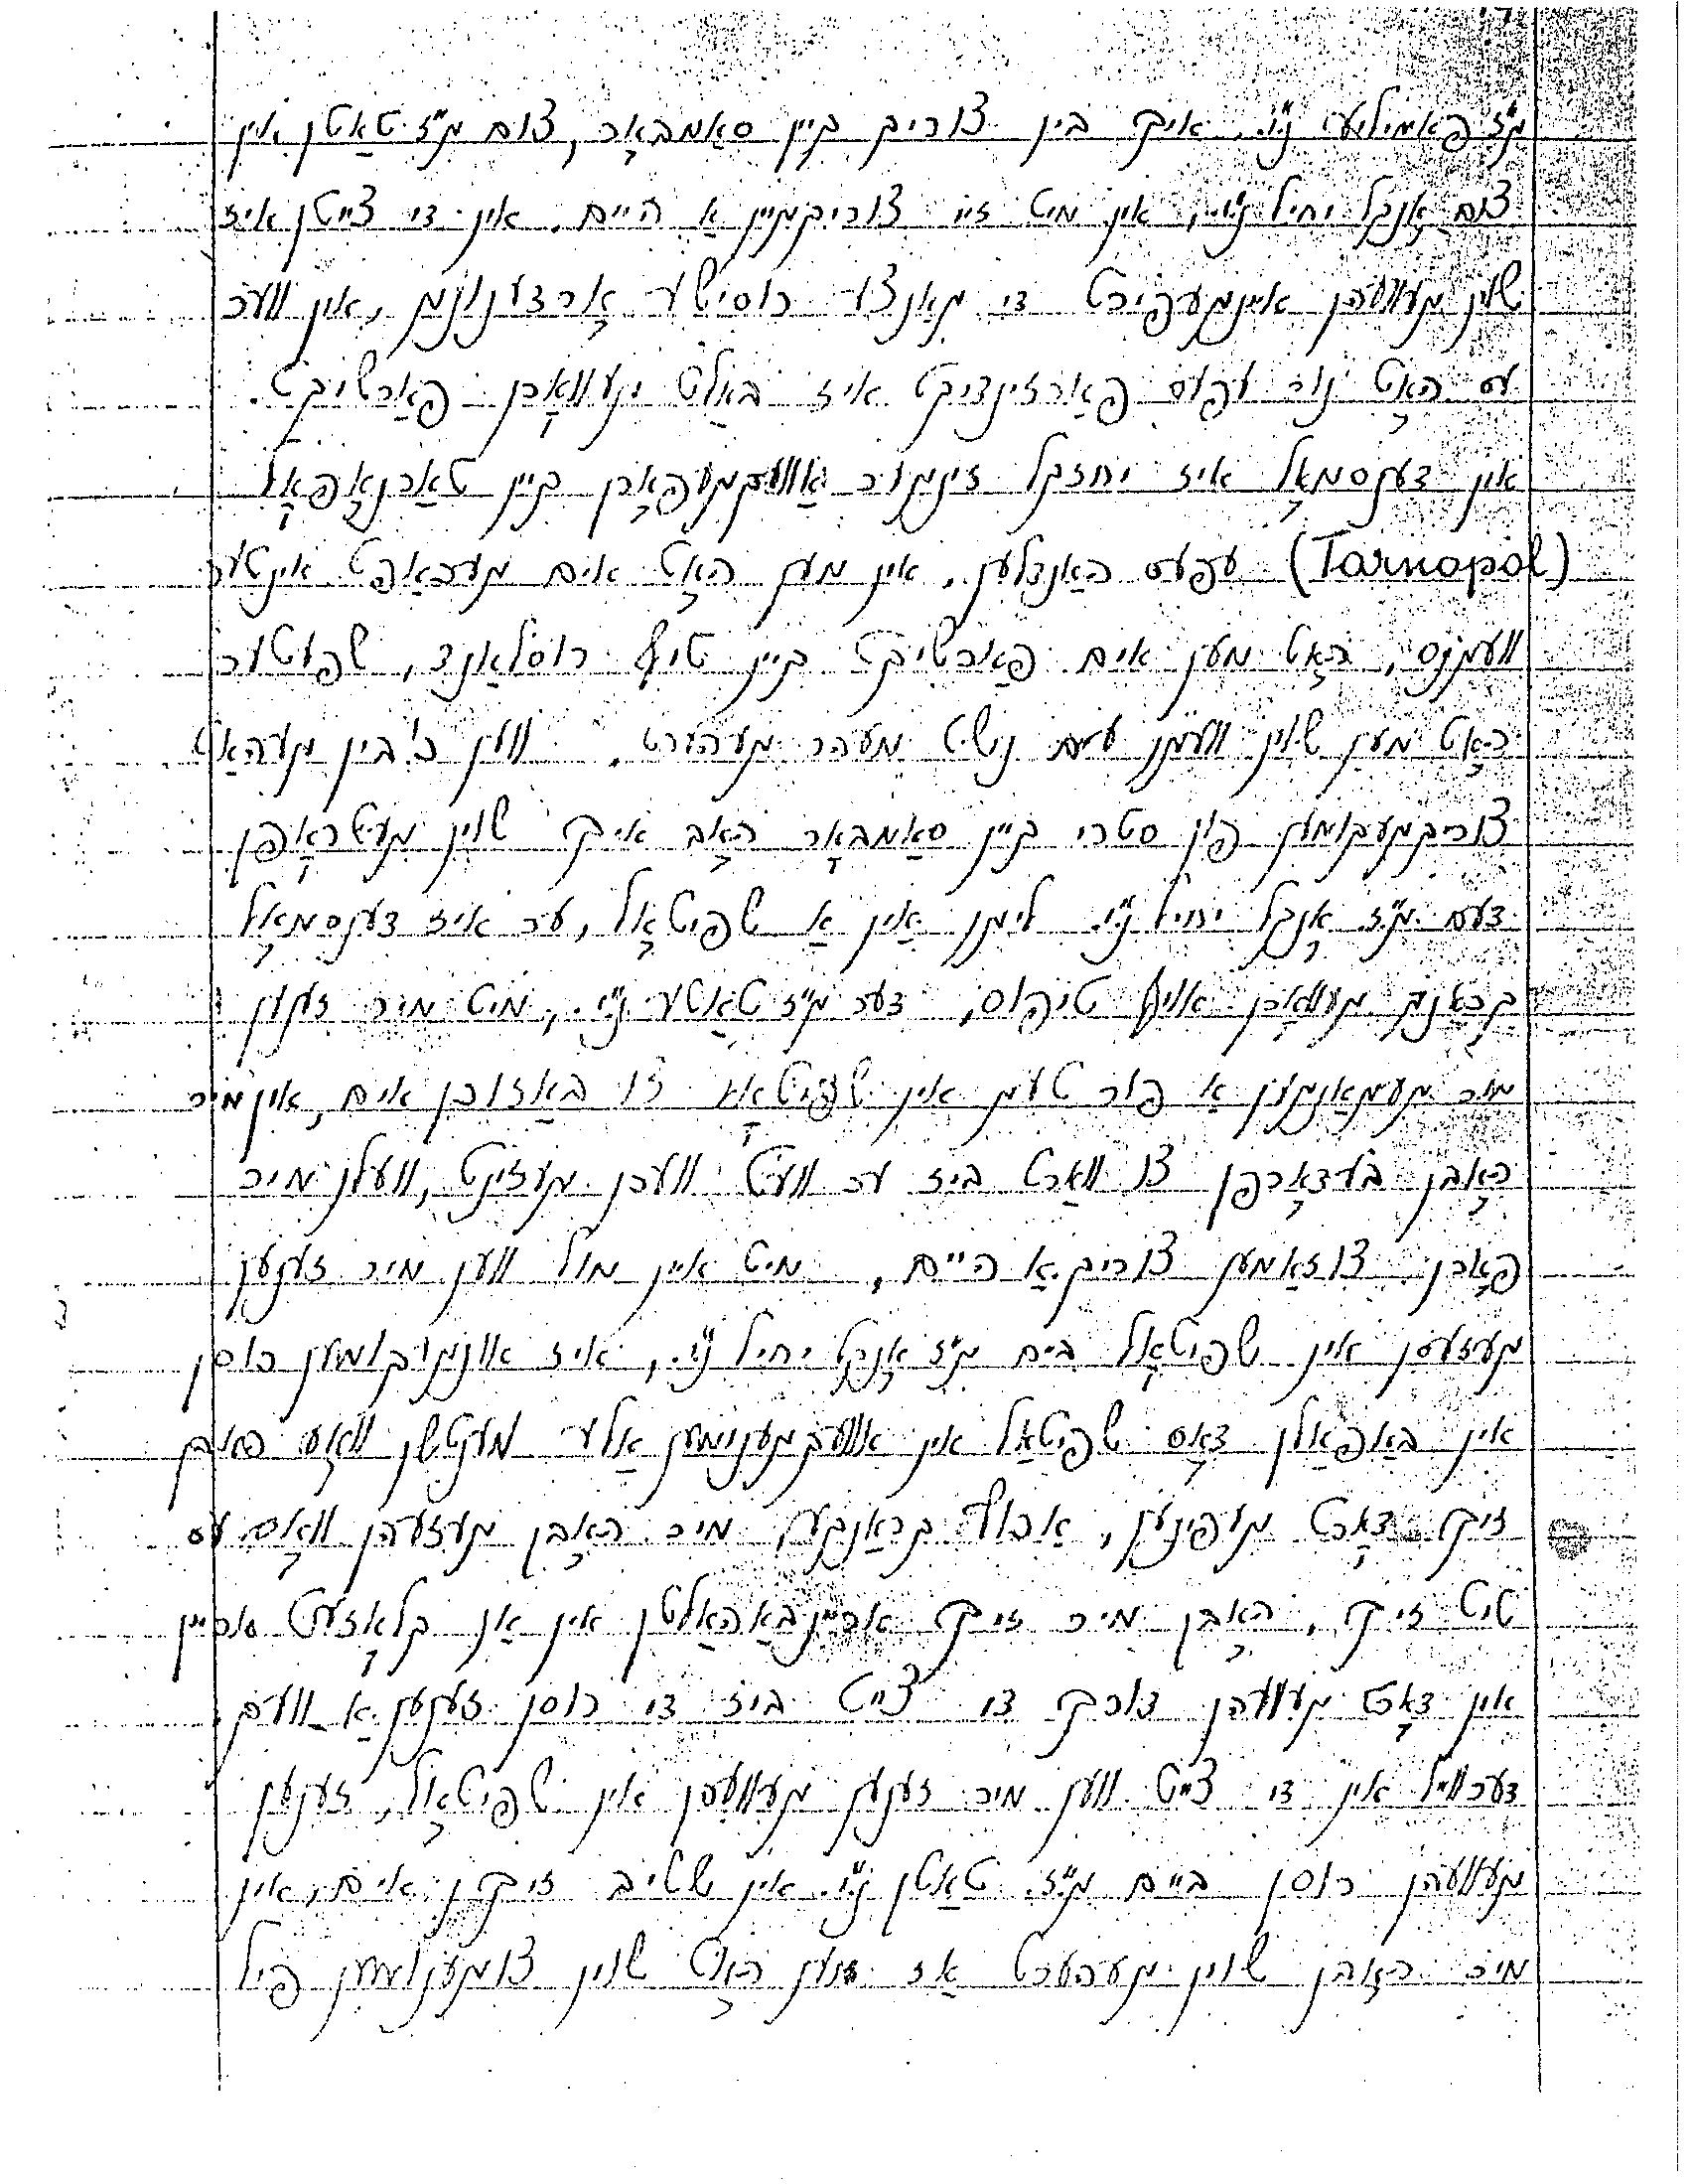 מ״ז פאמיליע נ״י. איך בין צוריק קיין סאַמבאָר, צום מ״ז טאַטן אין
צום אָנקל יחיאל נ״י, אין מיט זיי צוריקגיין אַ היים. אין די צייטן איז
שוין געווארן איינגעפירט די גאַנצע רוסישע אָרדענונג, אין ווער
עס האָט נור עפעס פאַרזינדיקט איז באַלט געוואָרן פאַרשיקט.
אין דענסמאָל איז יחזקל זינגער אַוועקגעפאָרן קיין טאַרנאָפּאָל
(Tarnopol) עפעס האַנדלען, אין מען האָט אים געכאַפּט אינטער
וועגנס, האָט מען אים פאַרשיקט קיין טיף רוסלאַנד, שפּעטער
האָט מען שוין וועגן עים נישט מעהר געהערט. ווען כ׳בין געהאַט
צוריקגעקומען פון סטרי קיין סאַמבאָר האָב איך שוין געטראָפן
דעם מ״ז אָנקל יחיאל נ״י. ליגן אין אַ שפּיטאָל, ער איז דענסמאָל
קראַנק געוואָרן אויף טיפוס, דער מ״ז טאַטע נ״י., מיט מיר זענען
מיר געגאַנגען אַ פּור טעג אין שפּיטאָל צו באַזוכן אים, אין מיר
האָבן בעדאָרפן צו וואַרט ביז ער וועט ווערן געזונט, וועלן מיר
פאָרן צוזאַמען צוריק אַ היים, מיט איין מול ווען מיר זענען
געזעסן אין שפּיטאָל בים מ״ז אָנקל יחיאל נ״י., איז אונגעקומען רוסן
אין באַפאַלן דאָס שפּיטאָל אין אַוועקגענומען אַלע מענטשן וואָס האבן
זיך דאָרט געפינען, אַרויף קראַנקע, מיר האָבן געזעהן וואָס עס
טיט זיך, האָבן מיר זיך אריינבאַהאַלטן אין אַן קלאָזעט אריין
אין דאָרט געווהן דורך די צייט ביז די רוסן זענען אַ וועק.
דערווייל אין די צייט ווען מיר זענען געוועסן אין שפּיטאָל, זענען
געוועהן רוסן ביים מ״ז טאַטן נ״י. אין שטיב זיכן אים, אין
מיר האָבן שוין געהערט אַז מען האָט שוין צוגענומען פיל